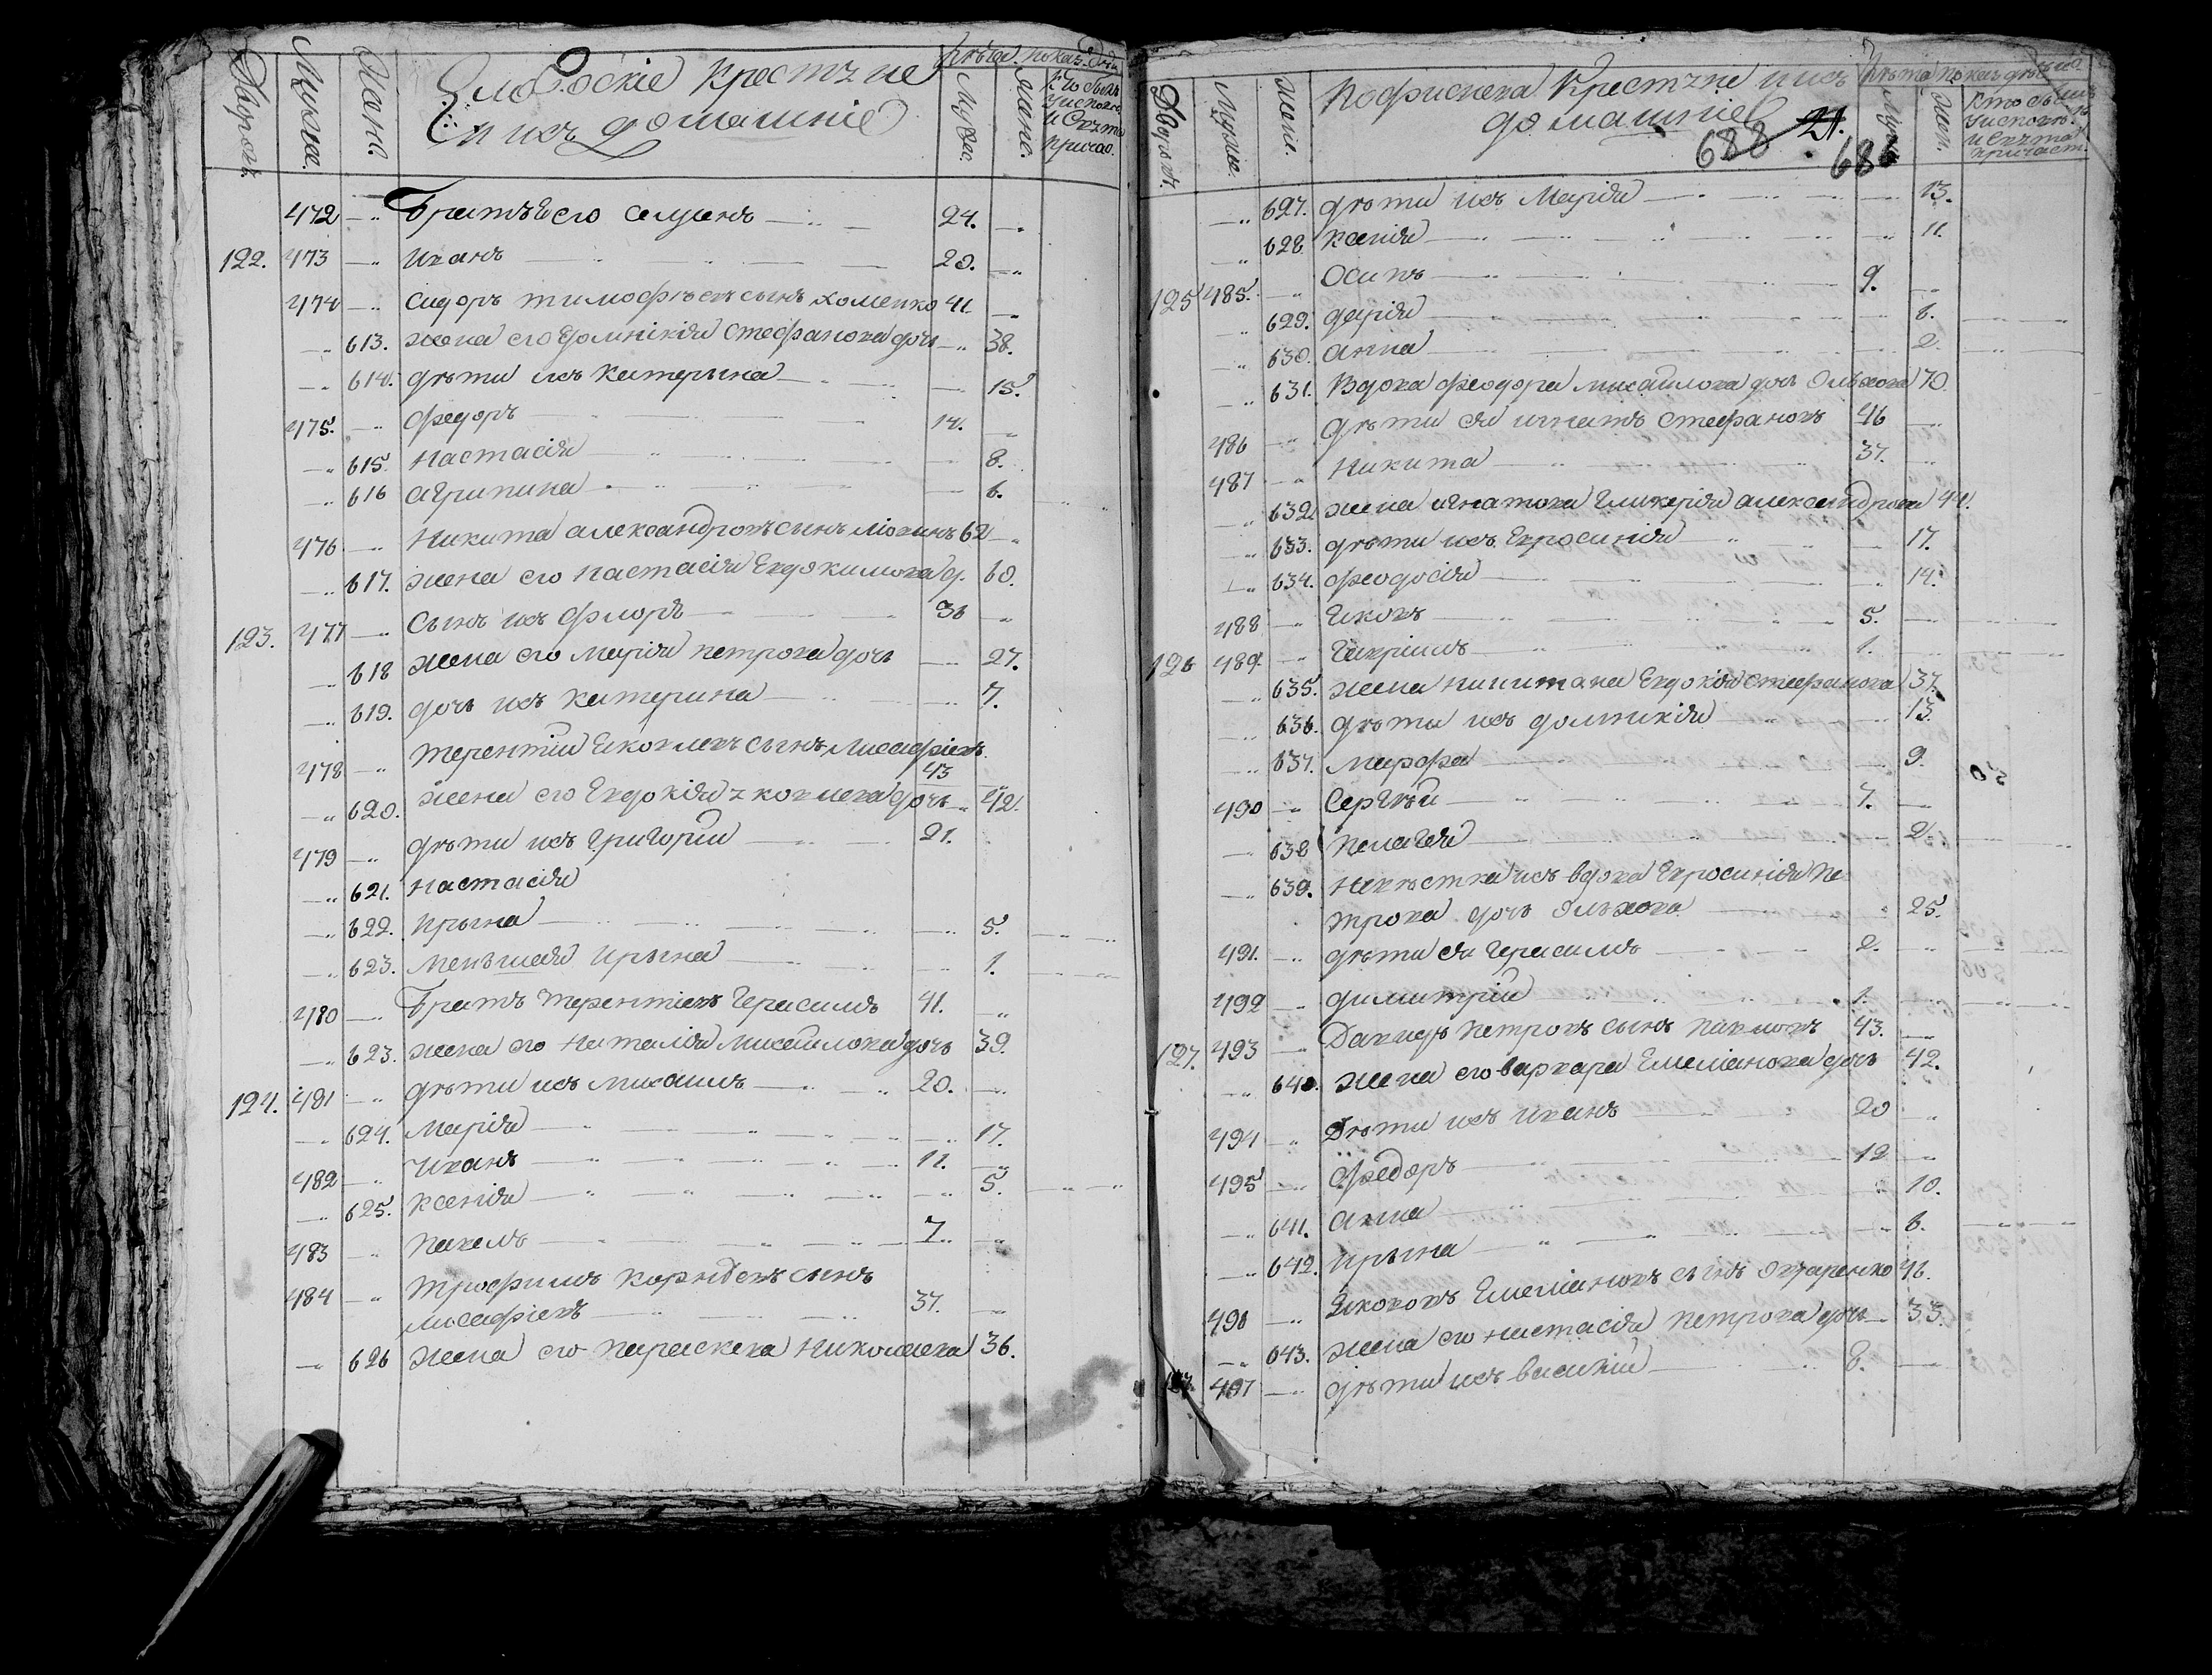 Дворов.
Мужес.
Женс.
Слободскіе крестяне
и ихъ домашніе
лѣта
Мужес.
Женс.
472 Братъ его 24.
122. 473 Иванъ 20.
474 Сидоръ тимофѣевъ сынъ хоменко 41
613. жена его домникія стефанова дочь 38.
614. дѣти ихъ катерына 15.
475. федоръ 14.
615. настасія 8.
616 агрипина 6.
476 никита александровъ сынъ 62
617. жена его настасія Евдокимова д. 60.
123. 477 сынъ ихъ флоръ 36
618 жена его марія петрова дочь 27.
619. дочь ихъ катерина 7.
478 терентій Яковлевъ сынъ лисафіевъ
43
620. жена его Евдокія яковлева дочь 42.
479 дѣти ихъ григорій 21.
621. настасія
622. ирына 5.
623. меньшая ирына 1.
480 Братъ терентіевъ герасимъ 41.
623. жена его наталія михайлова дочь 39.
124. 481 дѣти ихъ михаилъ 20.
624. марія 17.
482 иванъ 11.
625. ксенія 5.
483 павелъ 7.
484 трофимъ сынъ
лисафіевъ 37.
626 жена его параскева николаева 36.
Дворов.
Мужес.
Женс.
крестяне и ихъ
домашніе
688 21.
686
627. дѣти ихъ марія 13.
628 ксенія 11.
125 485. осипъ 9.
629. дарія 6.
630. анна 2.
631. вдова феодора михайлова дочь 70
486 дѣти ея игнатъ стефановъ 46
487 никита 37.
632. жена игнатова гликерія александрова 44.
633. дѣти ихъ Евросинія 17.
634. феодосія 14.
488 Яковъ 5.
126 489. гавріилъ 1.
635. жена никитана Евдокія стефанова 37.
636. дѣти ихъ домникія 13.
637. марфа 9.
490 сергѣй 7.
638 пелагея 2.
639. невѣстка ихъ вдова Евросинія пе
трова дочь 25.
491. дѣти ея герасимъ 2.
492 димитрій 1.
127. 493 Давидъ петровъ сынъ павловъ 43.
640. жена его варвара Емеліанова дочь 42.
494 Дѣти ихъ иванъ 20
495 федоръ 12
641. анна 10.
642. ирына 6.
496 Яковъ Емеліановъ сынъ овчаренко 46.
643. жена его настасія петрова дочь 33.
497 дѣти ихъ василій 8.